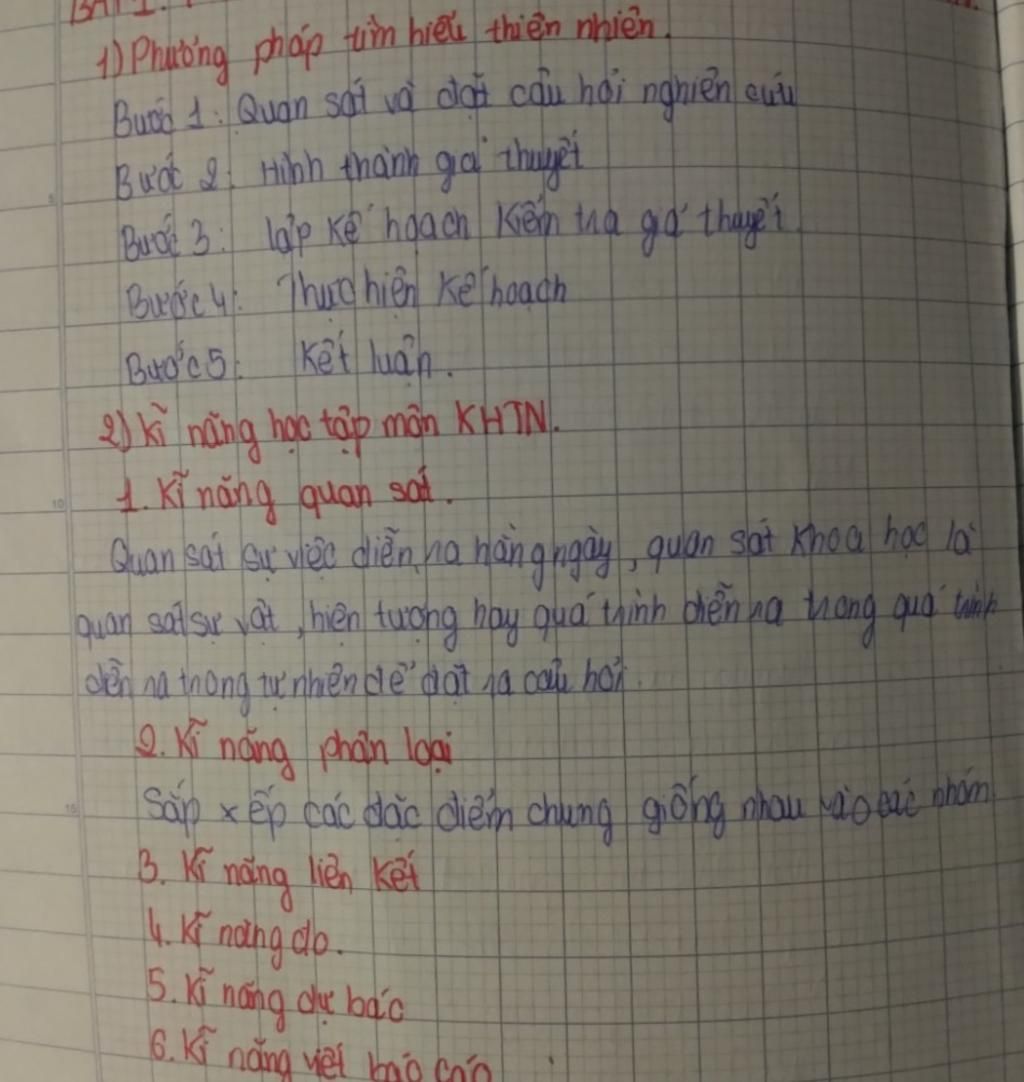 BÀI 1:
1) Phương pháp tìm hiểu thiên nhiên.
Bước 1: Quan sát và đặt câu hỏi nghiên cứu
Bước 2: Hình thành giả thuyết
Bước 3: lập kế hoạch kiểm tra giả thuyết
Bước 4: Thực hiện kế hoạch
Bước 5: Kết luận.
2) Kĩ năng học tập môn KHTN.
1. Kĩ năng quan sát.
Quan sát sự việc diễn ra hàng ngày, quan sát khoa học là
quan sát sự vật, hiện tượng hay quá trình diễn ra trong quá trình
diễn ra trong tự nhiên để đặt ra câu hỏi.
2. Kĩ năng phân loại
Sắp xếp các đặc điểm chung giống nhau vào các nhóm
3. Kĩ năng liên kết
4. Kĩ năng đo.
5. Kĩ năng dự báo
6. Kĩ năng viết báo cáo